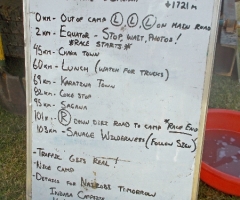 ↓1721m
0km - Out of camp Ⓛ, Ⓛ, Ⓛ on main road
2km - Equator - Stop, wait, photos!
*Race starts*
45km - Chaka Town
60km - Lunch (watch for trucks)
69km - Karatina Town
82km - Coke stop
93km - Sagana
101km - Ⓡ down dirt road to camp *Race End
103km - Savage Wilderness (follow sign)
- Traffic gets real!
- Nice camp
- Details for Nairobi tomorrow